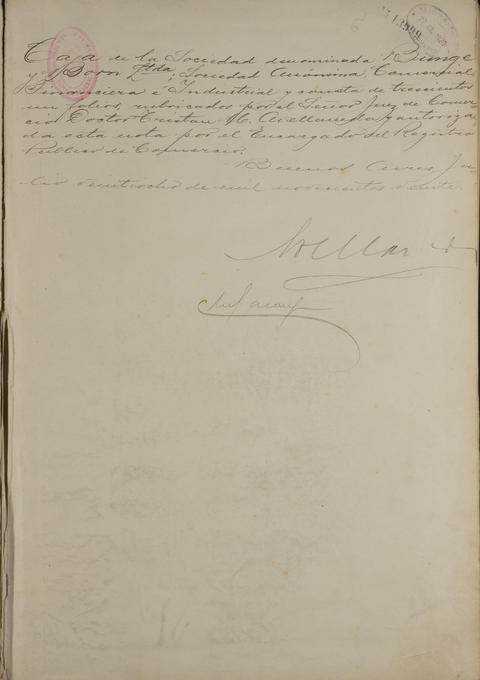 13999
Caja de la Sociedad denominada Bunge
y Born Ltda, Sociedad Anónima, Comercial,
Financiera é Industrial y consta de trescientos
un folios, rubricados por el Señor Juez de Comer
cio Doctor Tristan M. Avellaneda y autoriza
da esta nota por el Encargado del Registro
Público de Comercio.
Buenos Aires, Ju
lio veintiocho de mil novecientos veinte.